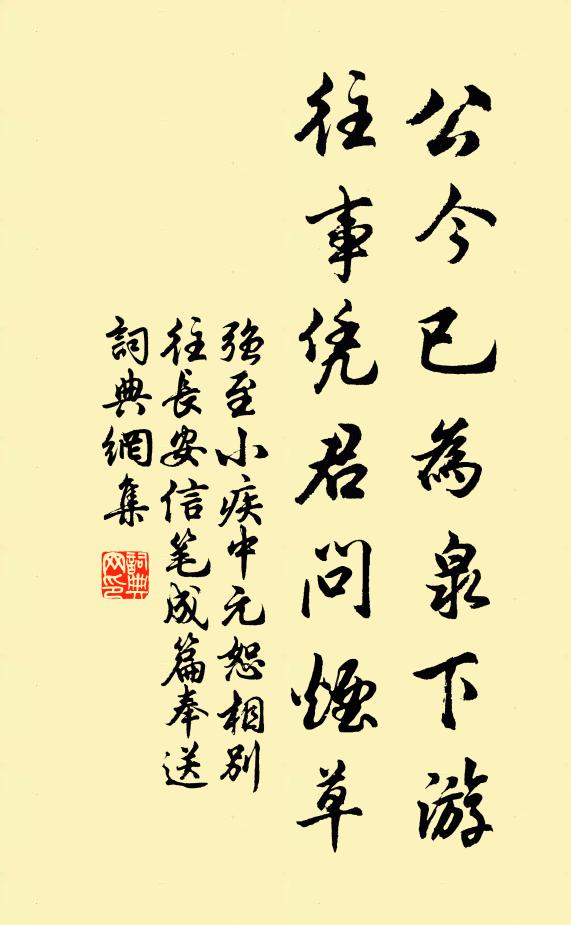 公今已為泉下游
往事凭君問煙草
強至小疾中元恕相別
往長安信笔成篇奉送
詞典網集
詞典网印